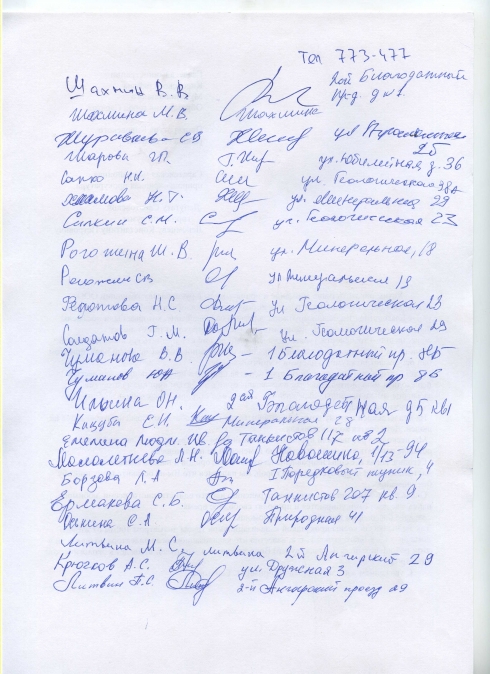 Тел 773-477
Шахтин В.В 2ой Благодатный
пр-д. д №1
Шахмина М.В. Шахмина
Журавлева СВ ул
25
Шарова Г.П. ул. Юбилейная д. 36
Сапко Н.И. ул. Геологическая 38А
Ж.Т. ул. Минеральная 29
Силкин С.Н. ул. Геологическая 23
Рогожина Ж.В. ул. Минеральная, 18
Рогожин СВ ул Минеральная 18
Федотова Н.С ул Геологическая 23
Солдатов Г.М. ул. Геологическая 29
Чуманова В.В. - 1 Благодатный пр. 8Б
Чуманов ЮН - 1 Благодатный пр 8б
Ильина ОН. 2ая Благодатная д5 кв1
Кацуба Е.И. Минеральная 28
Емелина Людм. Ив Танкистов 117 кв 2
Малолетнева Л.Н. Новоселко, 1/13-94
Борзова Л.А I Порядковый тупик, 4
Ермакова С.Б. Танкистов 207 кв. 9
С.А Природная 41
Литвина М.С. литвина 2й Ангарский 29
Крючков А.С. ул. Дружская 3
Литвин П.С 2-й Ангарский проезд 29